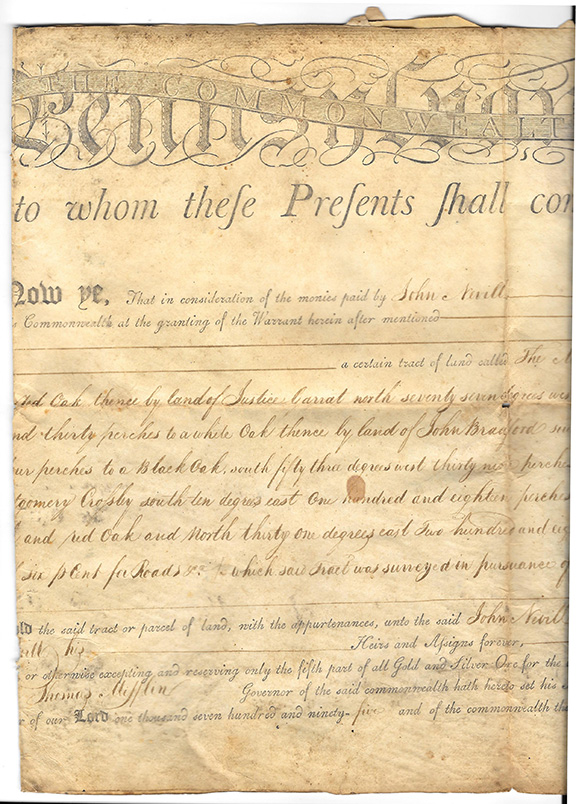 THE COMMONWEALT
Pennsylvan
to whom theſe Preſents ſhall con
Now ye, That in consideration of the monies paid by John Nevill
Commonwealth at the granting of the Warrant herein after mentioned
a certain tract of land called The M
red Oak thence by land of Justice Carrat north seventy seven degrees wes
nd thirty perches to a white Oak thence by land of John Bradford
our perches to a Black Oak, south fifty three degrees west thirty nine perches
tgomery Croſby south ten degrees east One hundred and eighteen perches
and red Oak and North thirty one degrees east Two hundred and eig
six p Cent for Roads &c which said Tract was surveyed in pursuance o
old the said tract or parcel of land, with the appurtenances, unto the said John Nevil
vill his Heirs and Aſsigns forever,
or otherwise excepting and reserving only the fifth part of all Gold and Silver Ore for the
Thomas Mifflin Governor of the said commonwealth hath hereto set his
r of our Lord one thousand seven hundred and ninety-five and of the commonwealth th